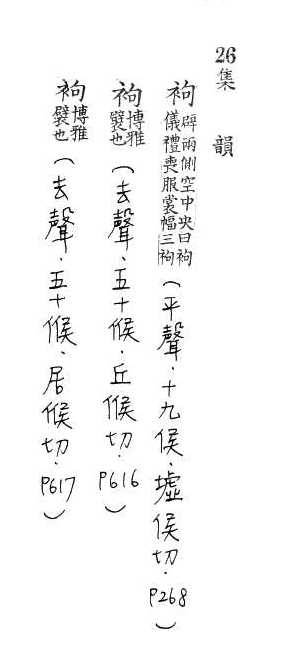 26集韻
袧 辟兩側空中央曰袧儀禮喪服裳幅三袧(平聲.十九侯.墟侯切.P268)
袧 博雅襞也(去聲.五十候.丘候切.P616)
袧 博雅襞也(去聲.五十候.居候切.P617)